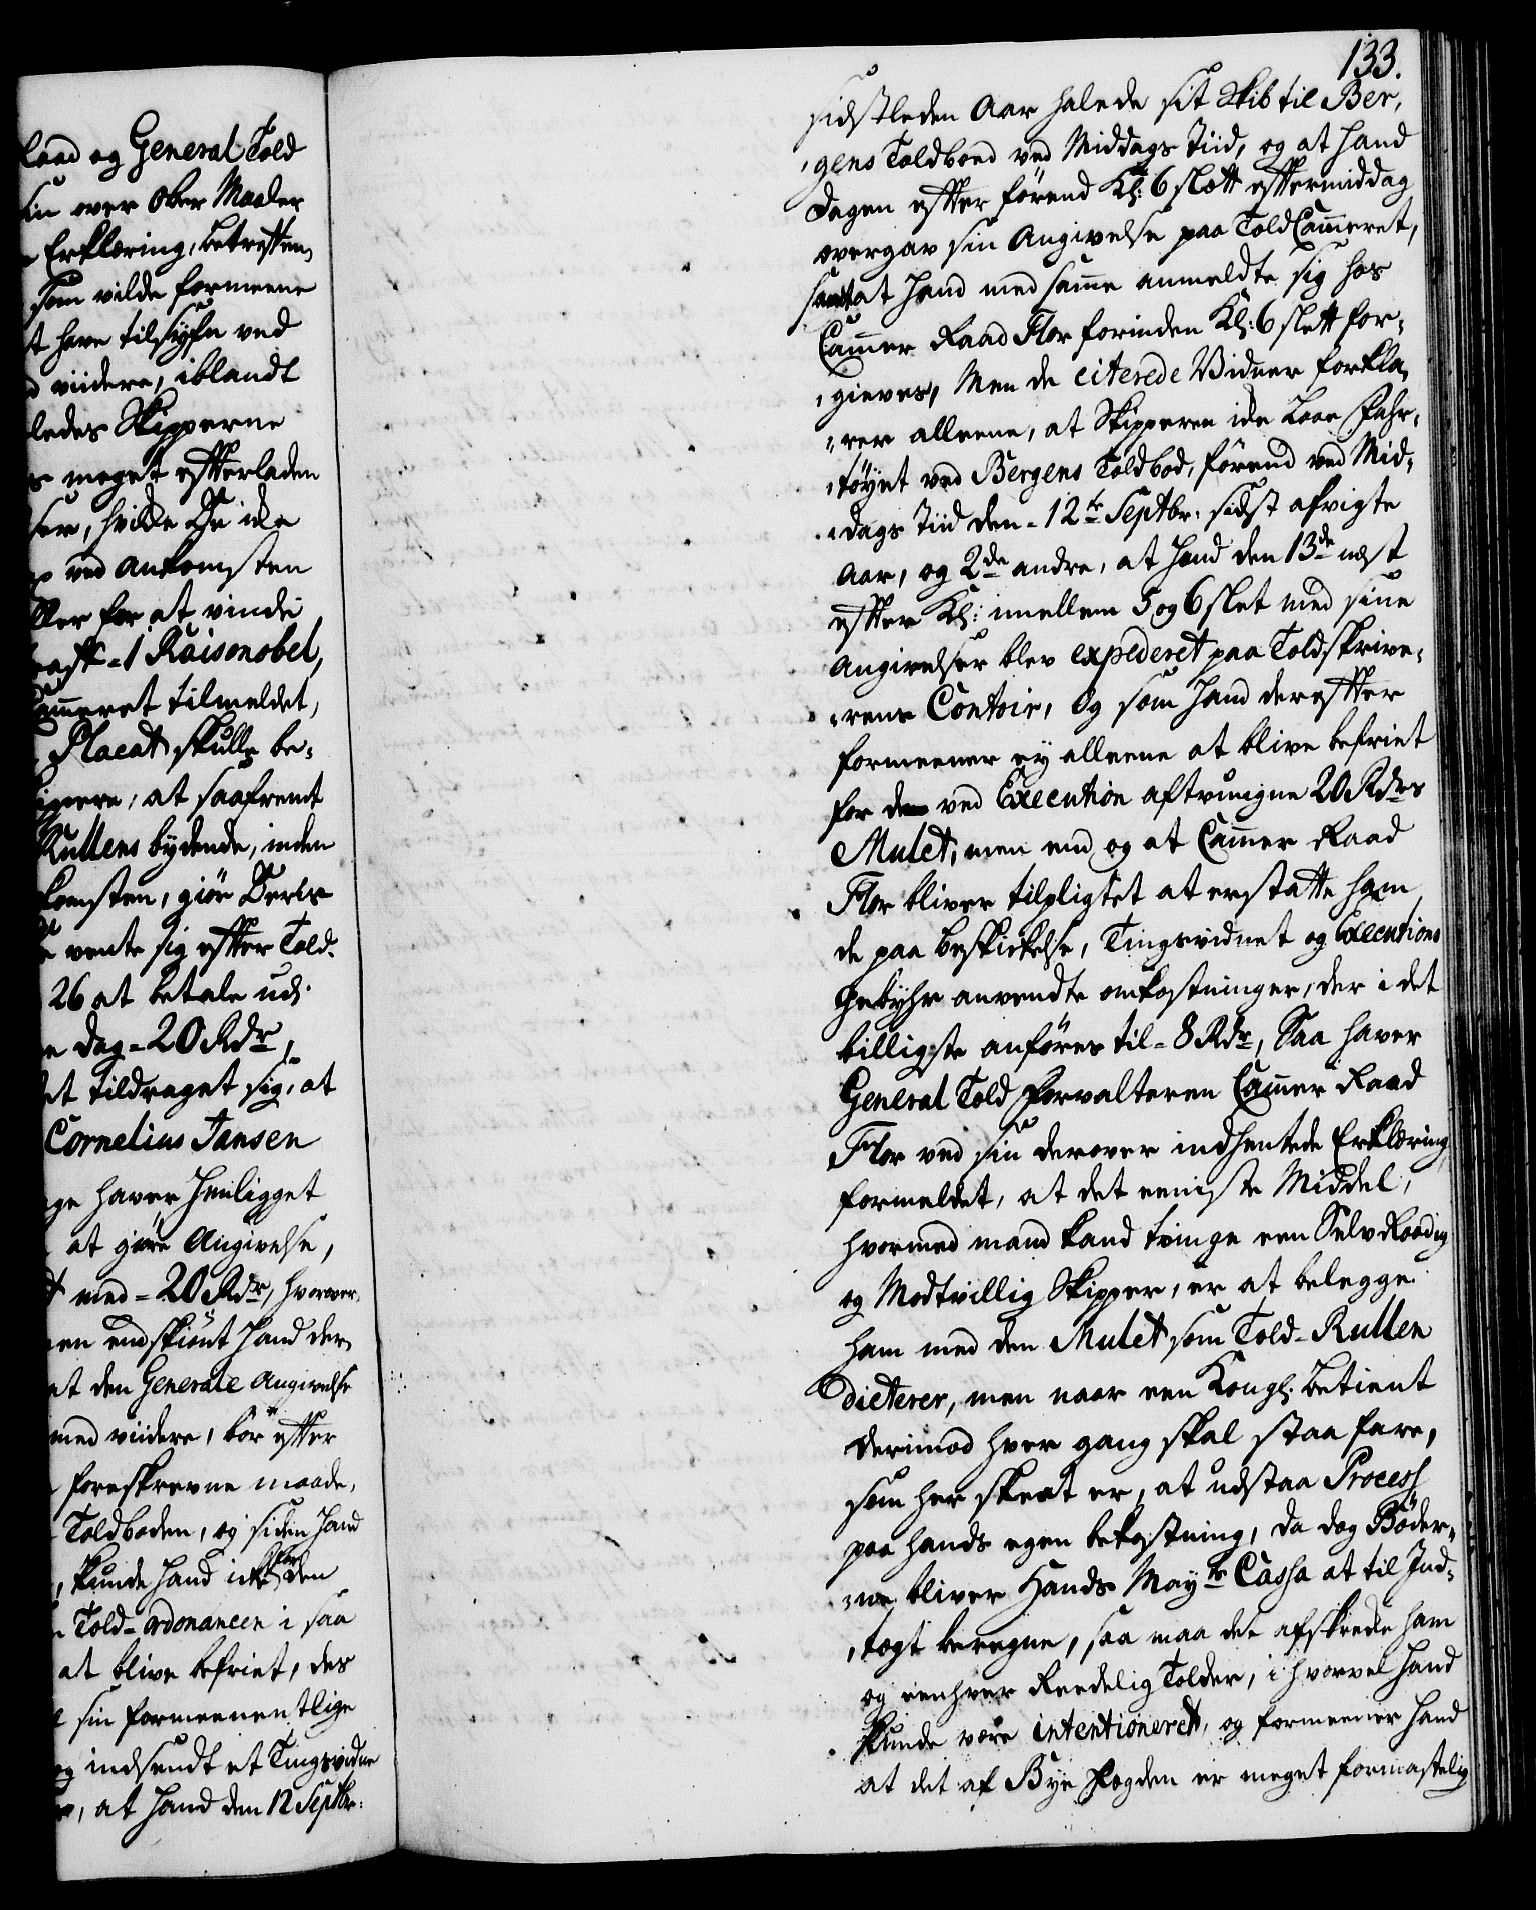 Raad og General Told
sin over Ober Maaler
Erklæring, betreffen,
som vilde formeene
at have tilsyn ved
viidere, iblandt
ledes Skipperne
meget efterladen
ser, hvilke De icke
ved Ankomsten
ller for at vinde
1 Raisonobel,
Cammeret tilmeldet,
Placat skulle be-
ippere, at saafremt
Rullens bydende, inden
komsten, giør Deris
vente sig efter Told-
26 at betale udi
Dag - 20 Rdr,
et tildraget sig, at
Cornelius Jansen
ge haver henligget
at giøre Angivelse,
med - 20 Rdr, hvorover
en endskiønt hand der
at den Generale Angivelse
med viidere, bør efter
foreskrevne maade,
Toldboden, og siden hand
, kunde hand icke efter den
Told-Ordonancen i saa
at blive befriet, des
sin formeenentlige
og indsendt et Tingsvidne
, at hand den 12 Septbr:
133.
sidstleden Aar halede sit Skib til Ber,
gens Toldboed ved Middags Tiid, og at hand
Dagen efter førend Kl: 6 slett eftermiddag
overgav sin Angivelse paa Told Cammeret,
samt at hand med samme anmeldte sig hos
Cammer Raad Flor forinden Kl: 6 slett for-
gieves, Men de citerede Vidner forkla,
rer alleene, at Skipperen icke laae Fahr,
tøyet ved Bergens Toldbod, førend ved Mid-
dags Tiid den - 12te Septbr: sidst afvigte
Aar, og 2de andre, at hand den 13de næst
efter Kl: imellem 5 og 6 slet med sine
Angivelser blev expederet paa Toldskrive-
rens Contoir, Og som hand derefter
formeener ey alleene at blive befriet
for de ved Execution aftvungne 20 Rdrs
Mulct, men end og at Cammer Raad
Flor bliver tilpligtet at erstatte ham
de paa beskickelse, Tingsvidnet og Executions
Gebyhr anvendte omkostninger, der i det
billigste anføres til - 8 Rdr, Saa haver
General Told Forvalteren Cammer Raad
Flor ved sin derover indhentede Erklæring
formeldet, at det eeniste Middel,
hvormed mand kand tvinge een Selv Raadig
og Modtvillig Skipper, er at belegge
ham med den Mulct som Told-Rullen
dicterer, men naar een Kongl: Betient
derimod hver gang skal staa fare,
som her skeet er, at udstaa Process
paa hands egen bekostning, da dog Bøder-
ne bliver Hands Mayts Cassa at til Ind-
tegt beregne, saa maa det afskrecke ham
og eenhver Reedelig Tolder, i hvorvel hand
kunde være intentioneret, og formeener hand
at det af Bye Fogden er meget formastelig